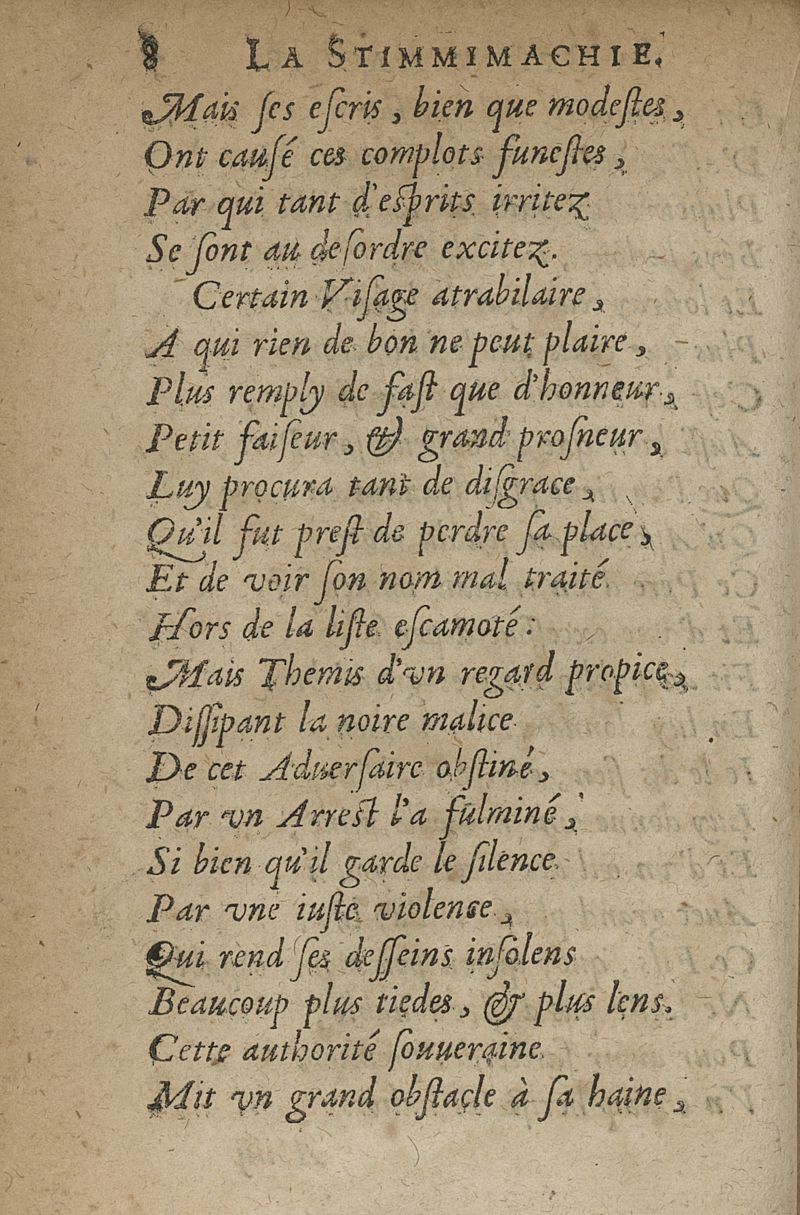 8 LA STIMMIMACHIE.
Mais ſes eſcris, bien que modeſtes,
Ont cauſé ces complots funeſtes,
Par qui tant d'eſprits irritez
Se ſont au deſordre excitez.
Certain Viſage atrabilaire,
A qui rien de bon ne peut plaire,
Plus remply de faſt que d'honneur,
Petit faiſeur, & grand proſneur,
Luy procura tant de diſgrace,
Qu'il fut preſt de perdre ſa place,
Et de voir ſon nom mal traité
Hors de la liſte eſcamoté:
Mais Themis d'vn regard propice,
Diſſipant la noire malice
De cet Aduerſaire obſtiné,
Par vn Arreſt l'a fulminé,
Si bien qu'il garde le ſilence
Par vne iuſte violence,
Qui rend ſes deſſeins inſolens
Beaucoup plus tiedes, & plus lens.
Cette authorité ſouueraine
Mit vn grand obſtacle à ſa haine,